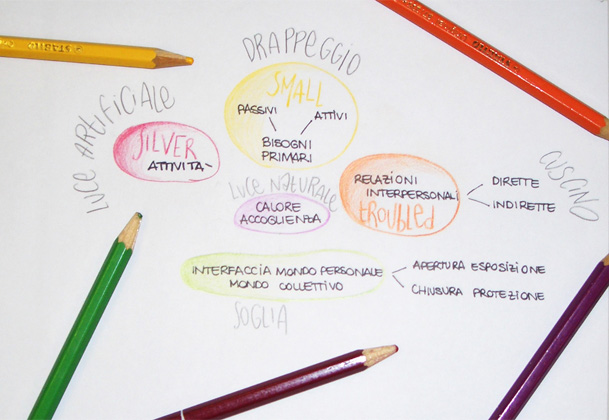 DRAPPEGGIO
SMALL
PASSIVI
ATTIVI
BISOGNI
PRIMARI
LUCE ARTIFICIALE
SILVER
ATTIVITA
LUCE NATURALE
CALORE
ACCOGLIENZA
RELAZIONI
INTERPERSONALI
TROUBLED
DIRETTE
INDIRETTE
CUSCINO
INTERFACCIA MONDO PERSONALE
MONDO COLLETTIVO
APERTURA ESPOSIZIONE
CHIUSURA PROTEZIONE
SOGLIA